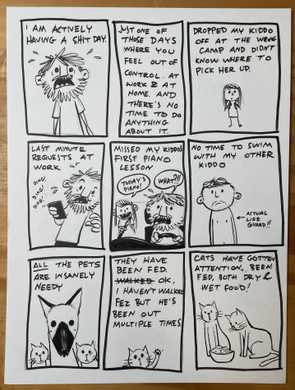 I AM ACTIVELY
HAVING A SHIT DAY.
JUST ONE
OF THOSE DAYS
WHERE YOU
FEEL OUT OF
CONTROL AT
WORK & AT
HOME. AND
THERE'S NO
TIME TO DO
ANYTHING
ABOUT IT.
DROPPED MY KIDDO
OFF AT THE WRONG
CAMP AND DIDN'T
KNOW WHERE TO
PICK HER UP.
LAST MINUTE
REQUESTS AT
WORK
MISSED MY KIDDO'S
FIRST PIANO
LESSON
TODAY'S
PIANO!
WHAT?!!
NO TIME TO SWIM
WITH MY OTHER
KIDDO
ACTUAL
LIFE
GUARD!!
ALL THE PETS
ARE INSANELY
NEEDY
THEY HAVE
BEEN FED.
WALKED OK,
I HAVEN'T WALKED
FEZ BUT HE'S
BEEN OUT
MULTIPLE TIMES
CATS HAVE GOTTEN
ATTENTION, BEEN
FED, BOTH DRY &
WET FOOD!